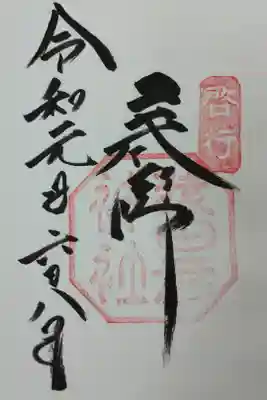 啓行
奉拝
神社
令和元年六月八日